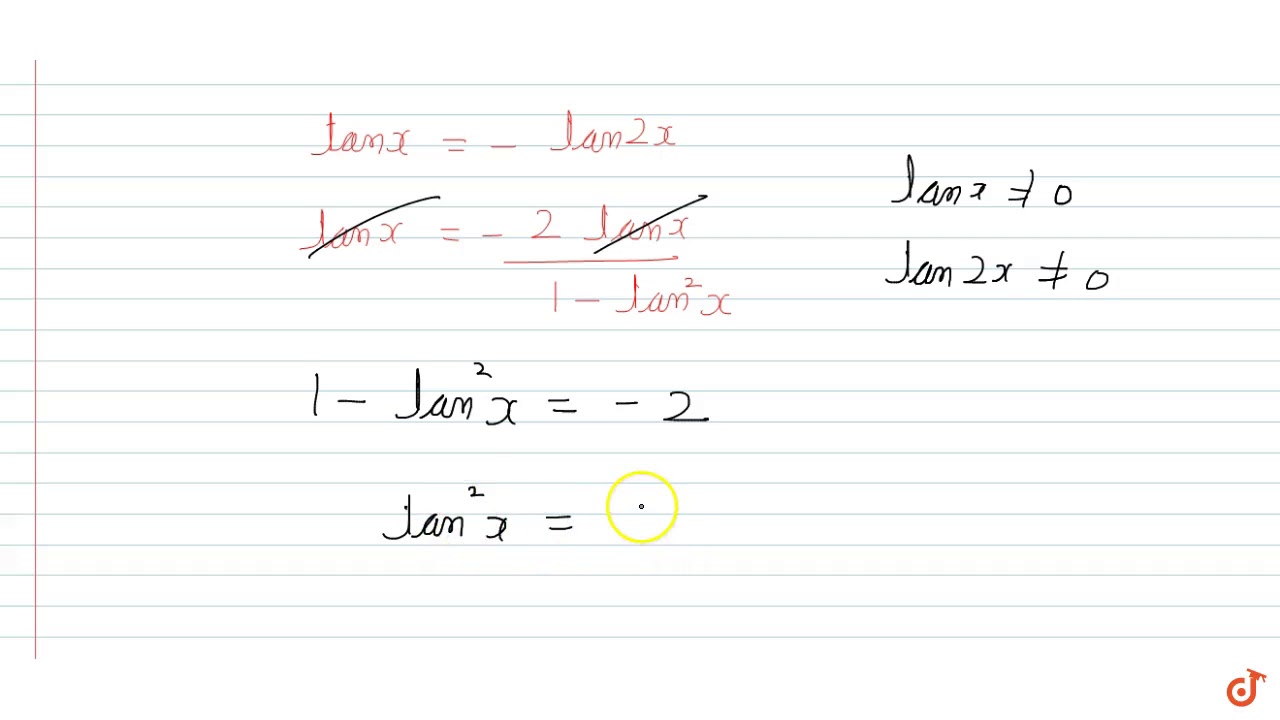 tanx = - tan2x
tanx = - 2 tanx / 1 - tan²x
tanx ≠ 0
tan2x ≠ 0
1 - tan²x = - 2
tan²x =